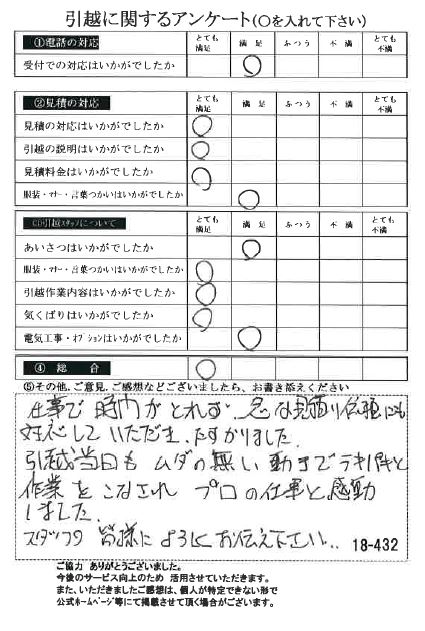 引越に関するアンケート(○を入れて下さい)
①電話の対応 とても満足 満足 ふつう 不満 とても不満
受付での対応はいかがでしたか ○
②見積の対応 とても満足 満足 ふつう 不満 とても不満
見積の対応はいかがでしたか ○
引越の説明はいかがでしたか ○
見積料金はいかがでしたか ○
服装・マナー・言葉つかいはいかがでしたか ○
引越スタッフについて とても満足 満足 ふつう 不満 とても不満
あいさつはいかがでしたか ○
服装・マナー・言葉つかいはいかがでしたか ○
引越作業内容はいかがでしたか ○
気くばりはいかがでしたか ○
電気工事・オプションはいかがでしたか ○
④ 総 合 ○
⑤その他、ご意見、ご感想などございましたら、お書き添えください
仕事で時間がとれず、急な見積り依頼にも
対応していただき、たすかりました。
引越当日もムダの無い動きでテキパキと
作業をこなされ プロの仕事と感動
しました。
スタッフの皆様によろしくお伝え下さい。
18-432
ご協力 ありがとうございました。
今後のサービス向上のため 活用させていただきます。
また、いただきましたご感想は、個人が特定できない形で
公式ホームページ等にて掲載させて頂く場合がございます。